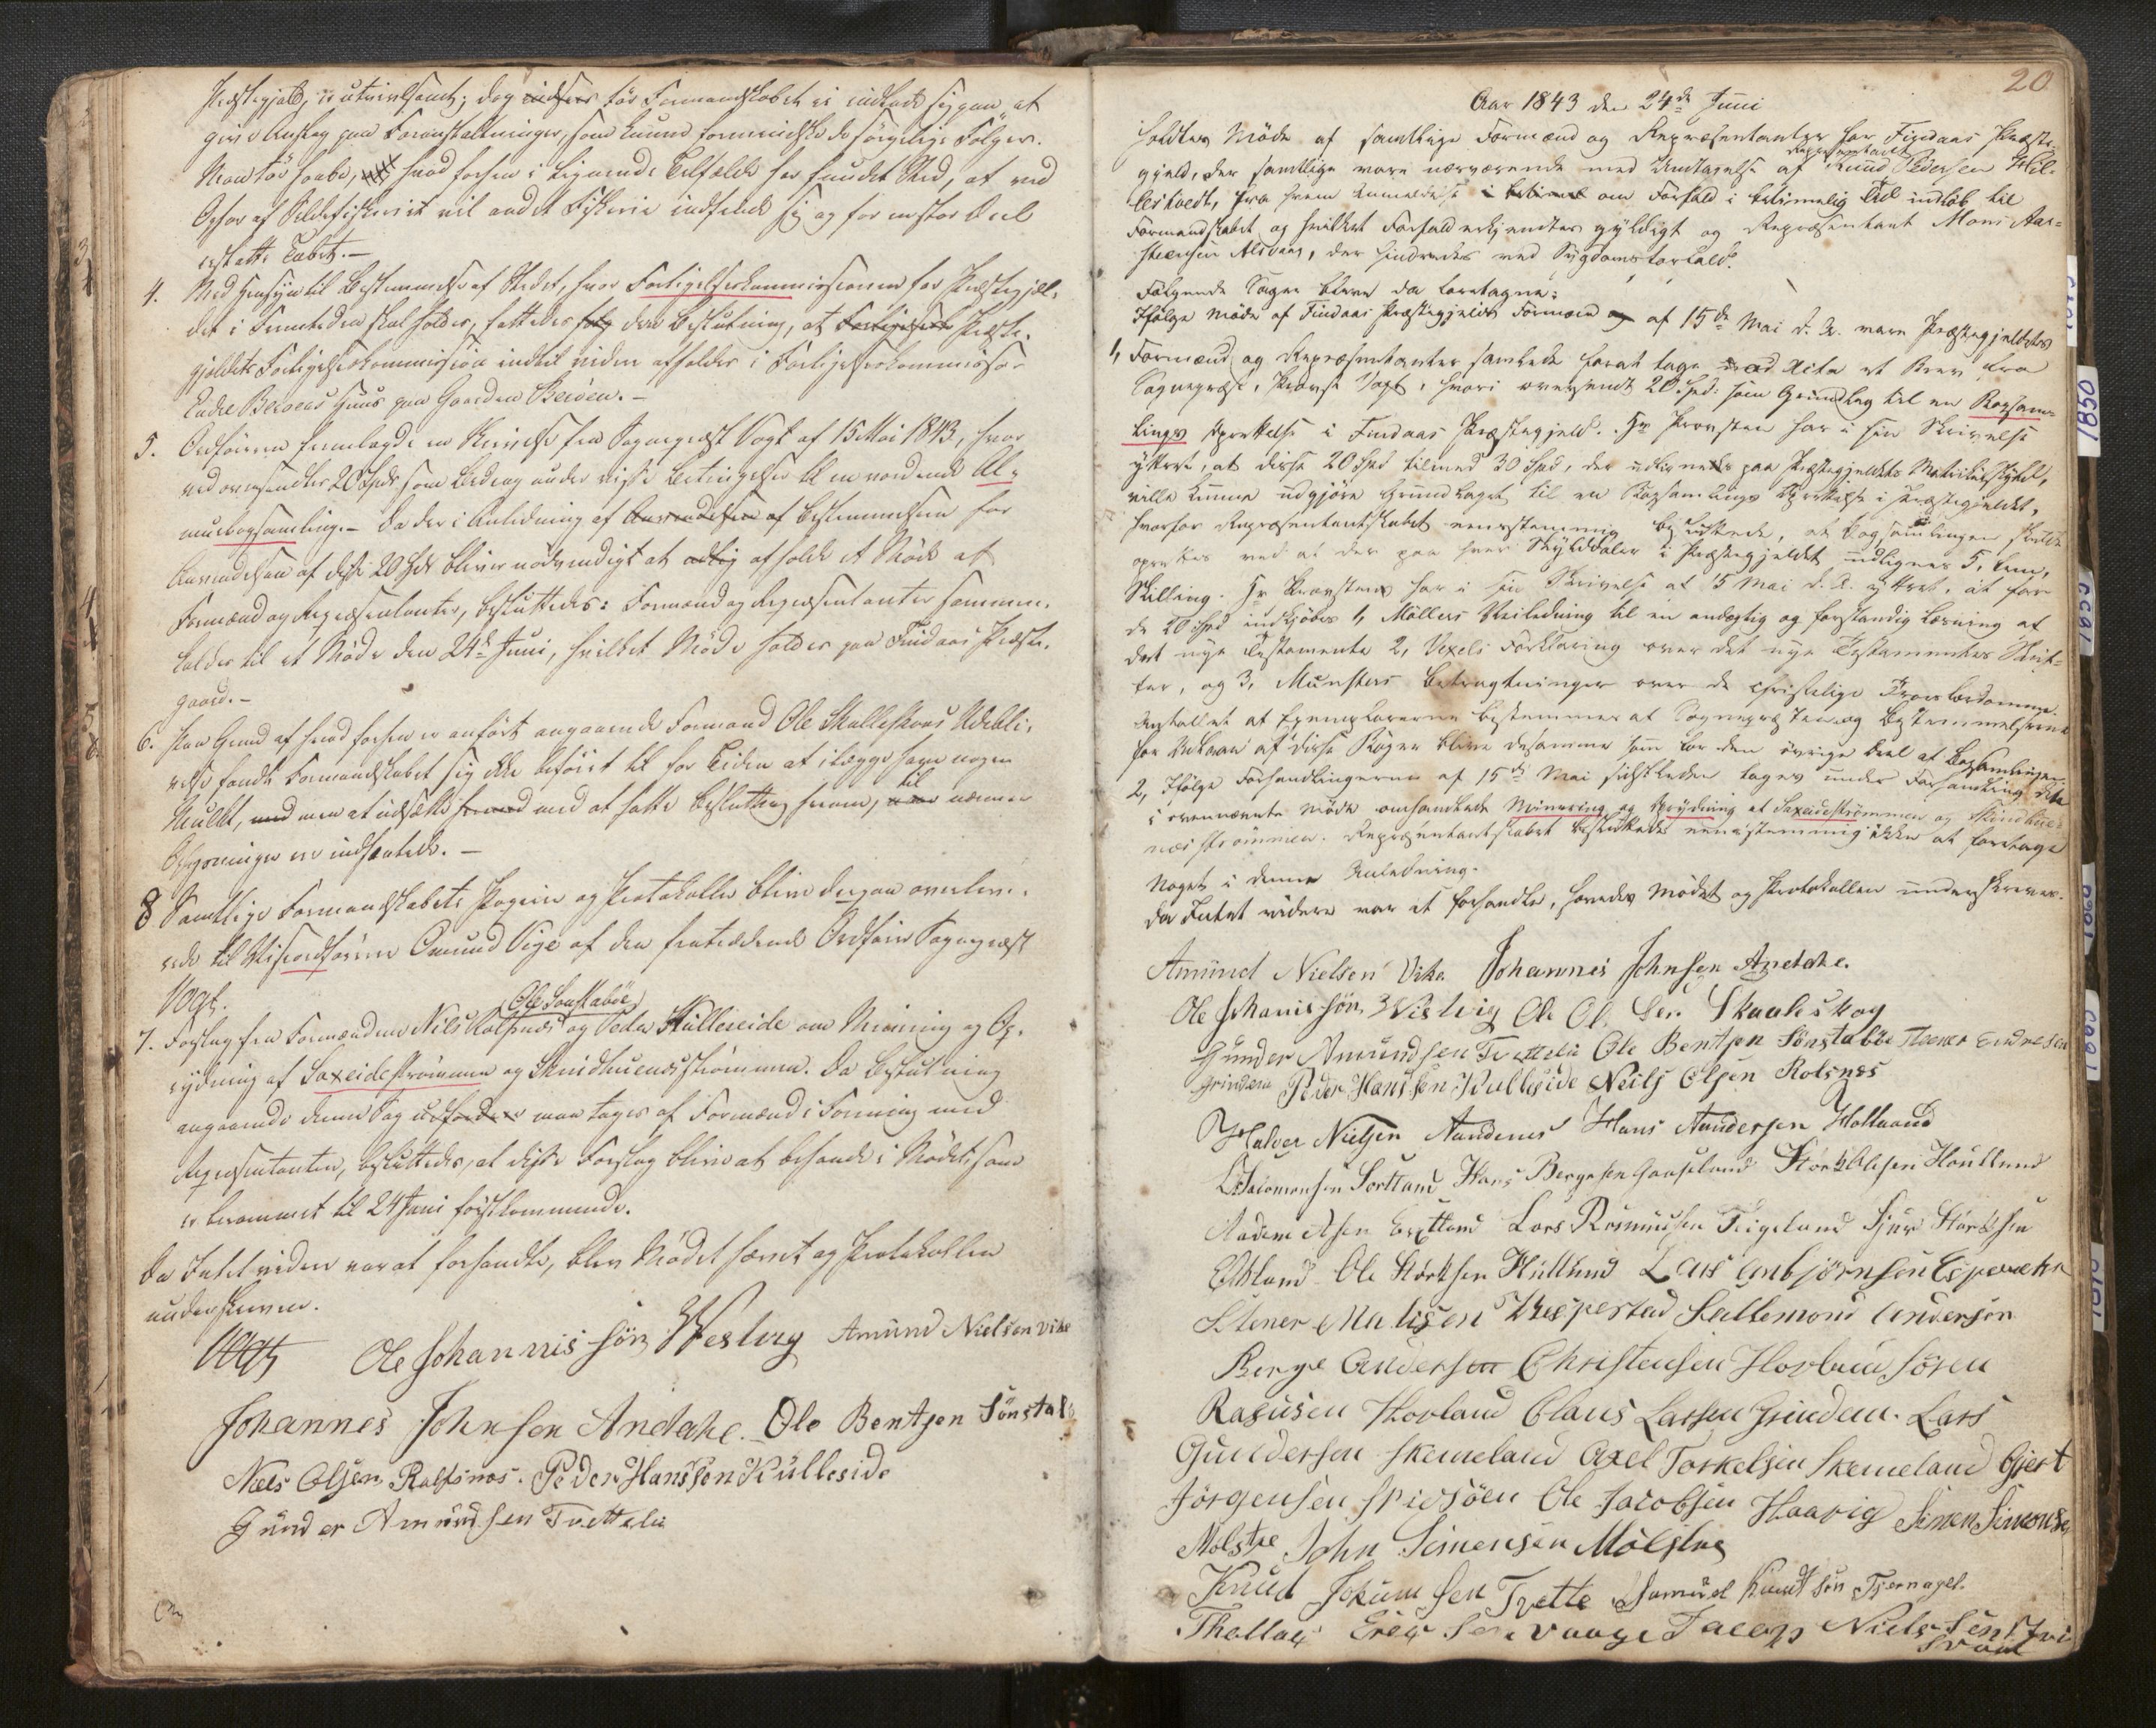 Præstegjeld, er utvivlsomt; dog indseer tør Formandskabet ei indlade sig paa at
give Anslag paa Foranstaltninger, som kunne formindske de sørgelige Følger.
Man tør haabe, hvad forhen i lignende Tilfælde har fundet Sted, at ved
Ophør af Sildefiskeriet vil andet Fiskerie indfinde sig og for en stor Deel
erstatte Tabet.-
4. Med Hensyn til Bestemmelse af Stedet, hvor Forligelseskommissionen for Præstegjæl-
det i Fremtiden skal holdes, fattedes den Beslutning, at Forligelses Præste-
gjeldets Forligelseskommission indtil videre afholdes i Forligelseskommissær
Endre Beroens Huus paa Gaarden Beröen.-
5. Ordføreren fremlagde en Skrivelse fra Sognepræst Vogt af 15 Mai 1843, hvor
ved oversendtes 20 Spd som Bidrag under visse Betingelser til en vordende Al-
muebogsamling.- Da der i Anledning af Anvendelsen af Bestemmelsen for
Anvendelsen af disse 20 Spd bliver nødvendigt at afholde et Møde af
Formænd og Repræsentanter, besluttedes: Formænd og Repræsentanter sammen-
kaldes til et Møde den 24de Juni, hvilket Møde holdes paa Findaas Præste-
gaard.-
6. Paa Grund af hvad forhen er anført angaaende Formand Ole Skulleskovs Udebli-
velse fandt Formandskabet sig ikke beføiet til for Tiden at ilægge ham nogen
Mulkt, men at udsætte med at fatte Beslutning herom, til nærmere
Oplysninger ere indhentede.-
8 Samtlige Formandskabets Papirer og Protokoller blive dagen overleve-
rede til Viseordfører Omund Vige af den fratrædende Ordfører Sognepræst
Vogt.
Ole Sønstabøe
7. Forslag fra Formændene Nils Rolfsnæs og Peder Kulleseide om Minering og Op-
rydning af Saxeidstrømmen og Skindhuenæsstrømmen. Da Beslutning
angaaende denne Sag maa tages af Formænd i Forening med
Repræsentanter, besluttedes, at disse Forslag blive at behandle i Mødet som
er berammet til 24 Juni førstkommende.
Da Intet videre var at forhandle, blev Mødet hævet og Protokollen
underskreven.
Vogt Ole Johannis sön Westvig Amund Nielsen Vike
Johannes Johnsen Andahl. Ole Bentsen Sönstab
Niels Olsen Rolfsnæs. Peder Hanssen Kulleside
Gunder Amundsen Tvettelie
20
Aar 1843 den 24de Juni
holdtes Møde af samtlige Formænd og Repræsentanter for Findaas Præste-
gjeld, der samtlige vare nærværende med Undtagelse af Repræsentant Knud Pedersen
fra hvem Anmeldelse om Forfald i betimelig Tid indløb til
Formandskabet og hvilket Forfald erkjendtes gyldigt og Repræsentant Mons Aar-
steensen Alsvaag, der hindredes ved Sygdomsforfald.
Følgende Sager bleve da foretagne:
Ifølge Møde af Findaas Præstegjelds Formænd af 15de Mai d. A. vare Præstegjeldets
1, Formænd og Repræsentanter samlede forat tage ad Acta et Brev fra
Sognepræst, Provst Vogt, hvori oversendt 20 Spd: som Grundlag til en Bogsam-
lings Oprettelse i Findaas Præstegjeld. Hr Provsten har i sin Skrivelse
yttret, at disse 20 Spd tilmed 30 Spd, der udlignedes paa Præstegjeldets Matrikulskyld,
ville kunne udgjøre Grundlaget til en Bogsamlings Oprettelse i Præstegjeldet,
hvorfor Repræsentantskabet eenstemmig besluttede, at Bogsamlingen skulde
oprettes ved at der paa hver Skylddaler i Præstegjeldet udlignes 5, fem,
Skilling. Hr Provsten har i sin Skrivelse af 15 Mai d. A. yttret, at for
de 20 Spd indkjøbes 1, Møllers Veiledning til en andægtig og forstandig Læsning af
det nye Testamente 2, Vexels Forklaring over det nye Testamentes Skrif-
ter, og 3, Munsters Betragtninger over de christelige Troeslærdomme.
Antallet af Exemplarerne bestemmes af Sognepræsten og Bestemmelserne
for Udlaan af disse Bøger blive desamme som for den øvrige Deel af Bogsamlingen.
2, Ifølge Forhandlingerne af 15de Mai sidstleden toges under Forhandling den
i ovennævnte Møde omhandlede Minering og Oprydning af Saxeidstrømmen og Skindhue-
næsstrømmen. Repræsentantskabet besluttede eenstemmig ikke at foretage
Noget i denne Anledning.
Da Intet videre var at forhandle, hævedes Mødet og Protokollen underskreves.
Amund Nielsen Vike Johannes Johnsen Andahl.
Ole Johannis sön Westvig Ole Ol. Sen. Skauleskog
Gunder Amundsen Tvettelie Ole Bentsen Sönstabøe Endresen
Grindem Peder Hanssen Kulleside Neils Olsen Rolsnes
Halver Nielsen Hans Andersen Holland
Salomonsen Sortland Hans Bergesen Gaaseland Størk Olesen Houkland
Lars Rasmusen Tiigeland Sjur Størksen
Ekkland Ole Störksen Huttund Lars Enbjörnsen Espevæhr
Stener Matisen Wespestad Salemond Andersøn
Berge Andersen Christensen Hovland Sören
Rasusen Hovland Claus Larsen Grindem. Lars
Gundersen Skemeland Axel Torkelsen Skemeland Gjert
Jörgensen Spidsöen Ole Jacobsen Haavig Simen Simonsen
Molstre John Simensen Mölstre
Knud Jokum sen Tvette Samuel Knudt sön Tjernagel.
Thollag Erik Sen Vaage Jacop Nielssen